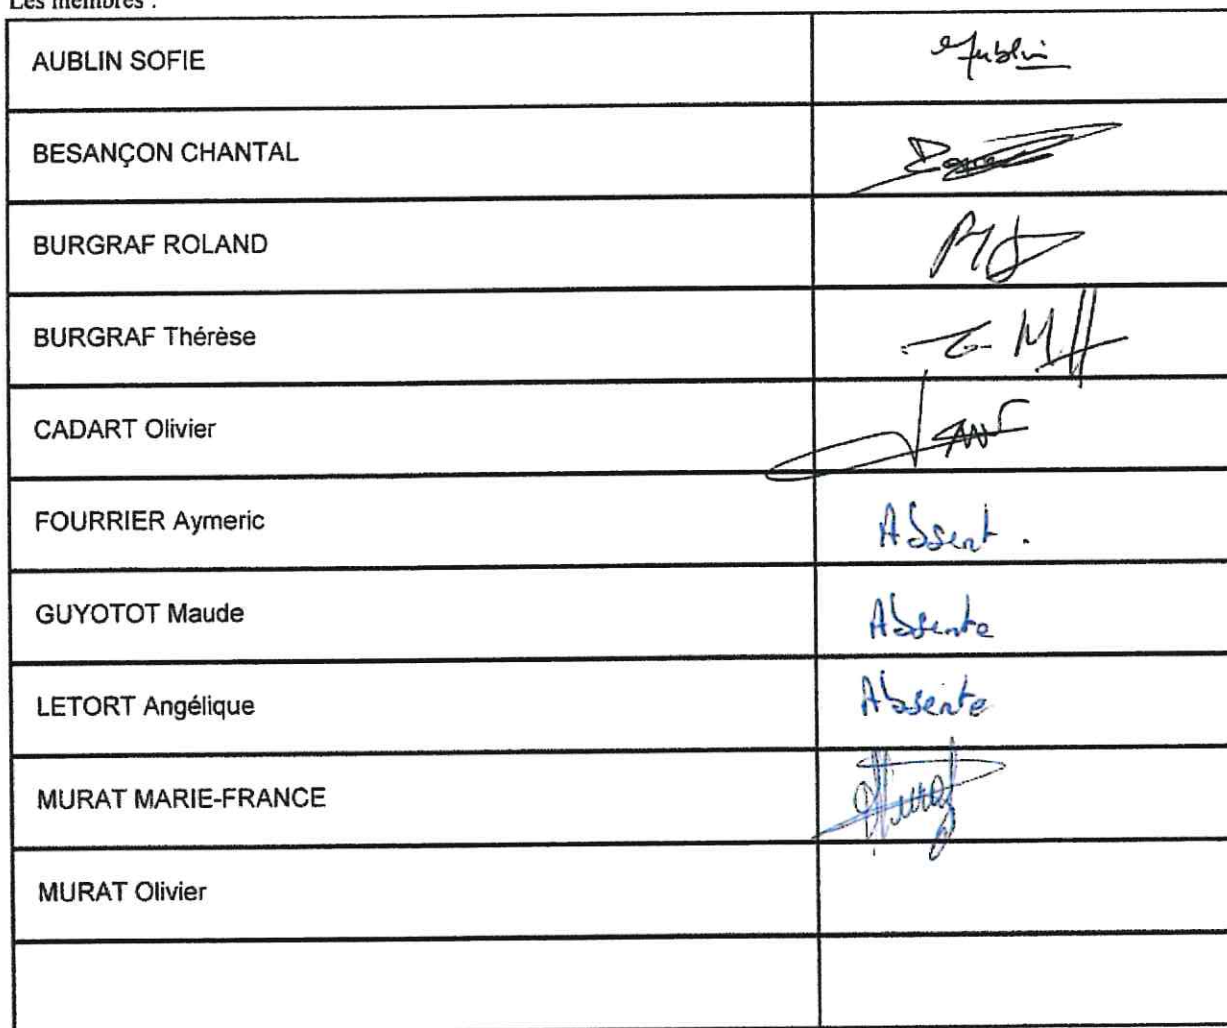 Les membres :
AUBLIN SOFIE Aublin
BESANÇON CHANTAL
BURGRAF ROLAND
BURGRAF Thérèse
CADART Olivier
FOURRIER Aymeric Absent.
GUYOTOT Maude Absente
LETORT Angélique Absente
MURAT MARIE-FRANCE
MURAT Olivier